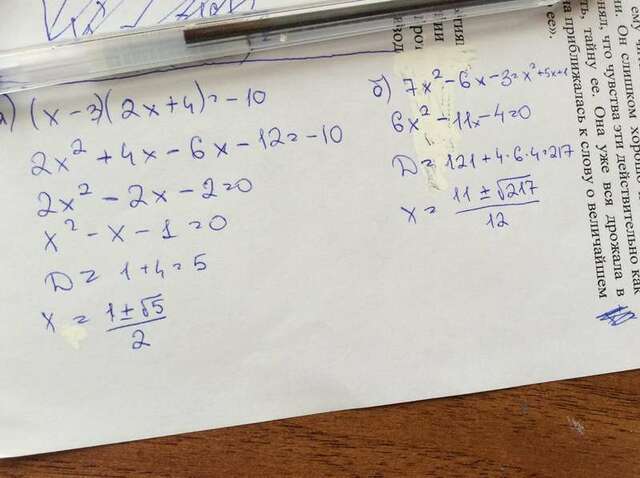 а) (x-3)(2x+4)=-10
2x²+4x-6x-12=-10
2x²-2x-2=0
x²-x-1=0
D=1+4=5
x=(1±√5)/2
б) 7x²-6x-3=x²+5x+1
6x²-11x-4=0
D=121+4·6·4=217
x=(11±√217)/12
Он слишком хорошо
что чувства эти действительно как
тайну ее. Она уже вся дрожала в
приближалась к слову о величайшем
ее».